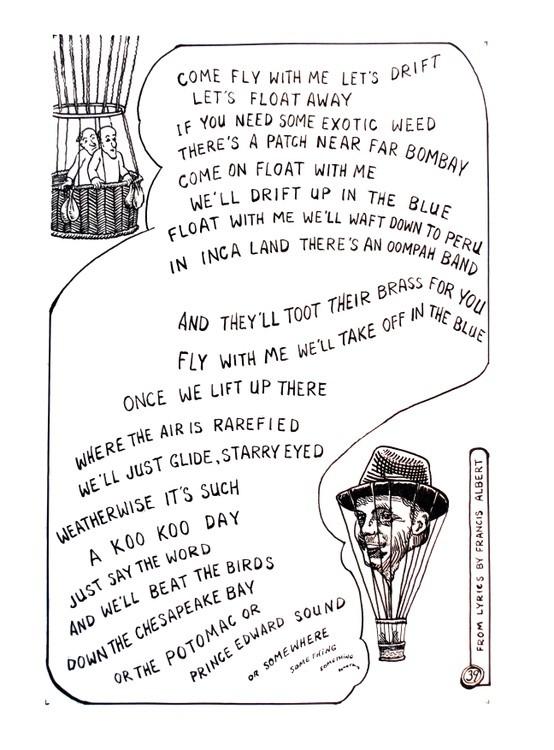 COME FLY WITH ME LET'S DRIFT
LET'S FLOAT AWAY
IF YOU NEED SOME EXOTIC WEED
THERE'S A PATCH NEAR FAR BOMBAY
COME ON FLOAT WITH ME
WE'LL DRIFT UP IN THE BLUE
FLOAT WITH ME WE'LL WAFT DOWN TO PERU
IN INCA LAND THERE'S AN OOMPAH BAND
AND THEY'LL TOOT THEIR BRASS FOR YOU
FLY WITH ME WE'LL TAKE OFF IN THE BLUE
ONCE WE LIFT UP THERE
WHERE THE AIR IS RAREFIED
WE'LL JUST GLIDE, STARRY EYED
WEATHERWISE IT'S SUCH
A KOO KOO DAY
JUST SAY THE WORD
AND WE'LL BEAT THE BIRDS
DOWN THE CHESAPEAKE BAY
OR THE POTOMAC OR
PRINCE EDWARD SOUND
OR SOMEWHERE
SOMETHING
SOMETHING
FROM LYRICS BY FRANCIS ALBERT
39